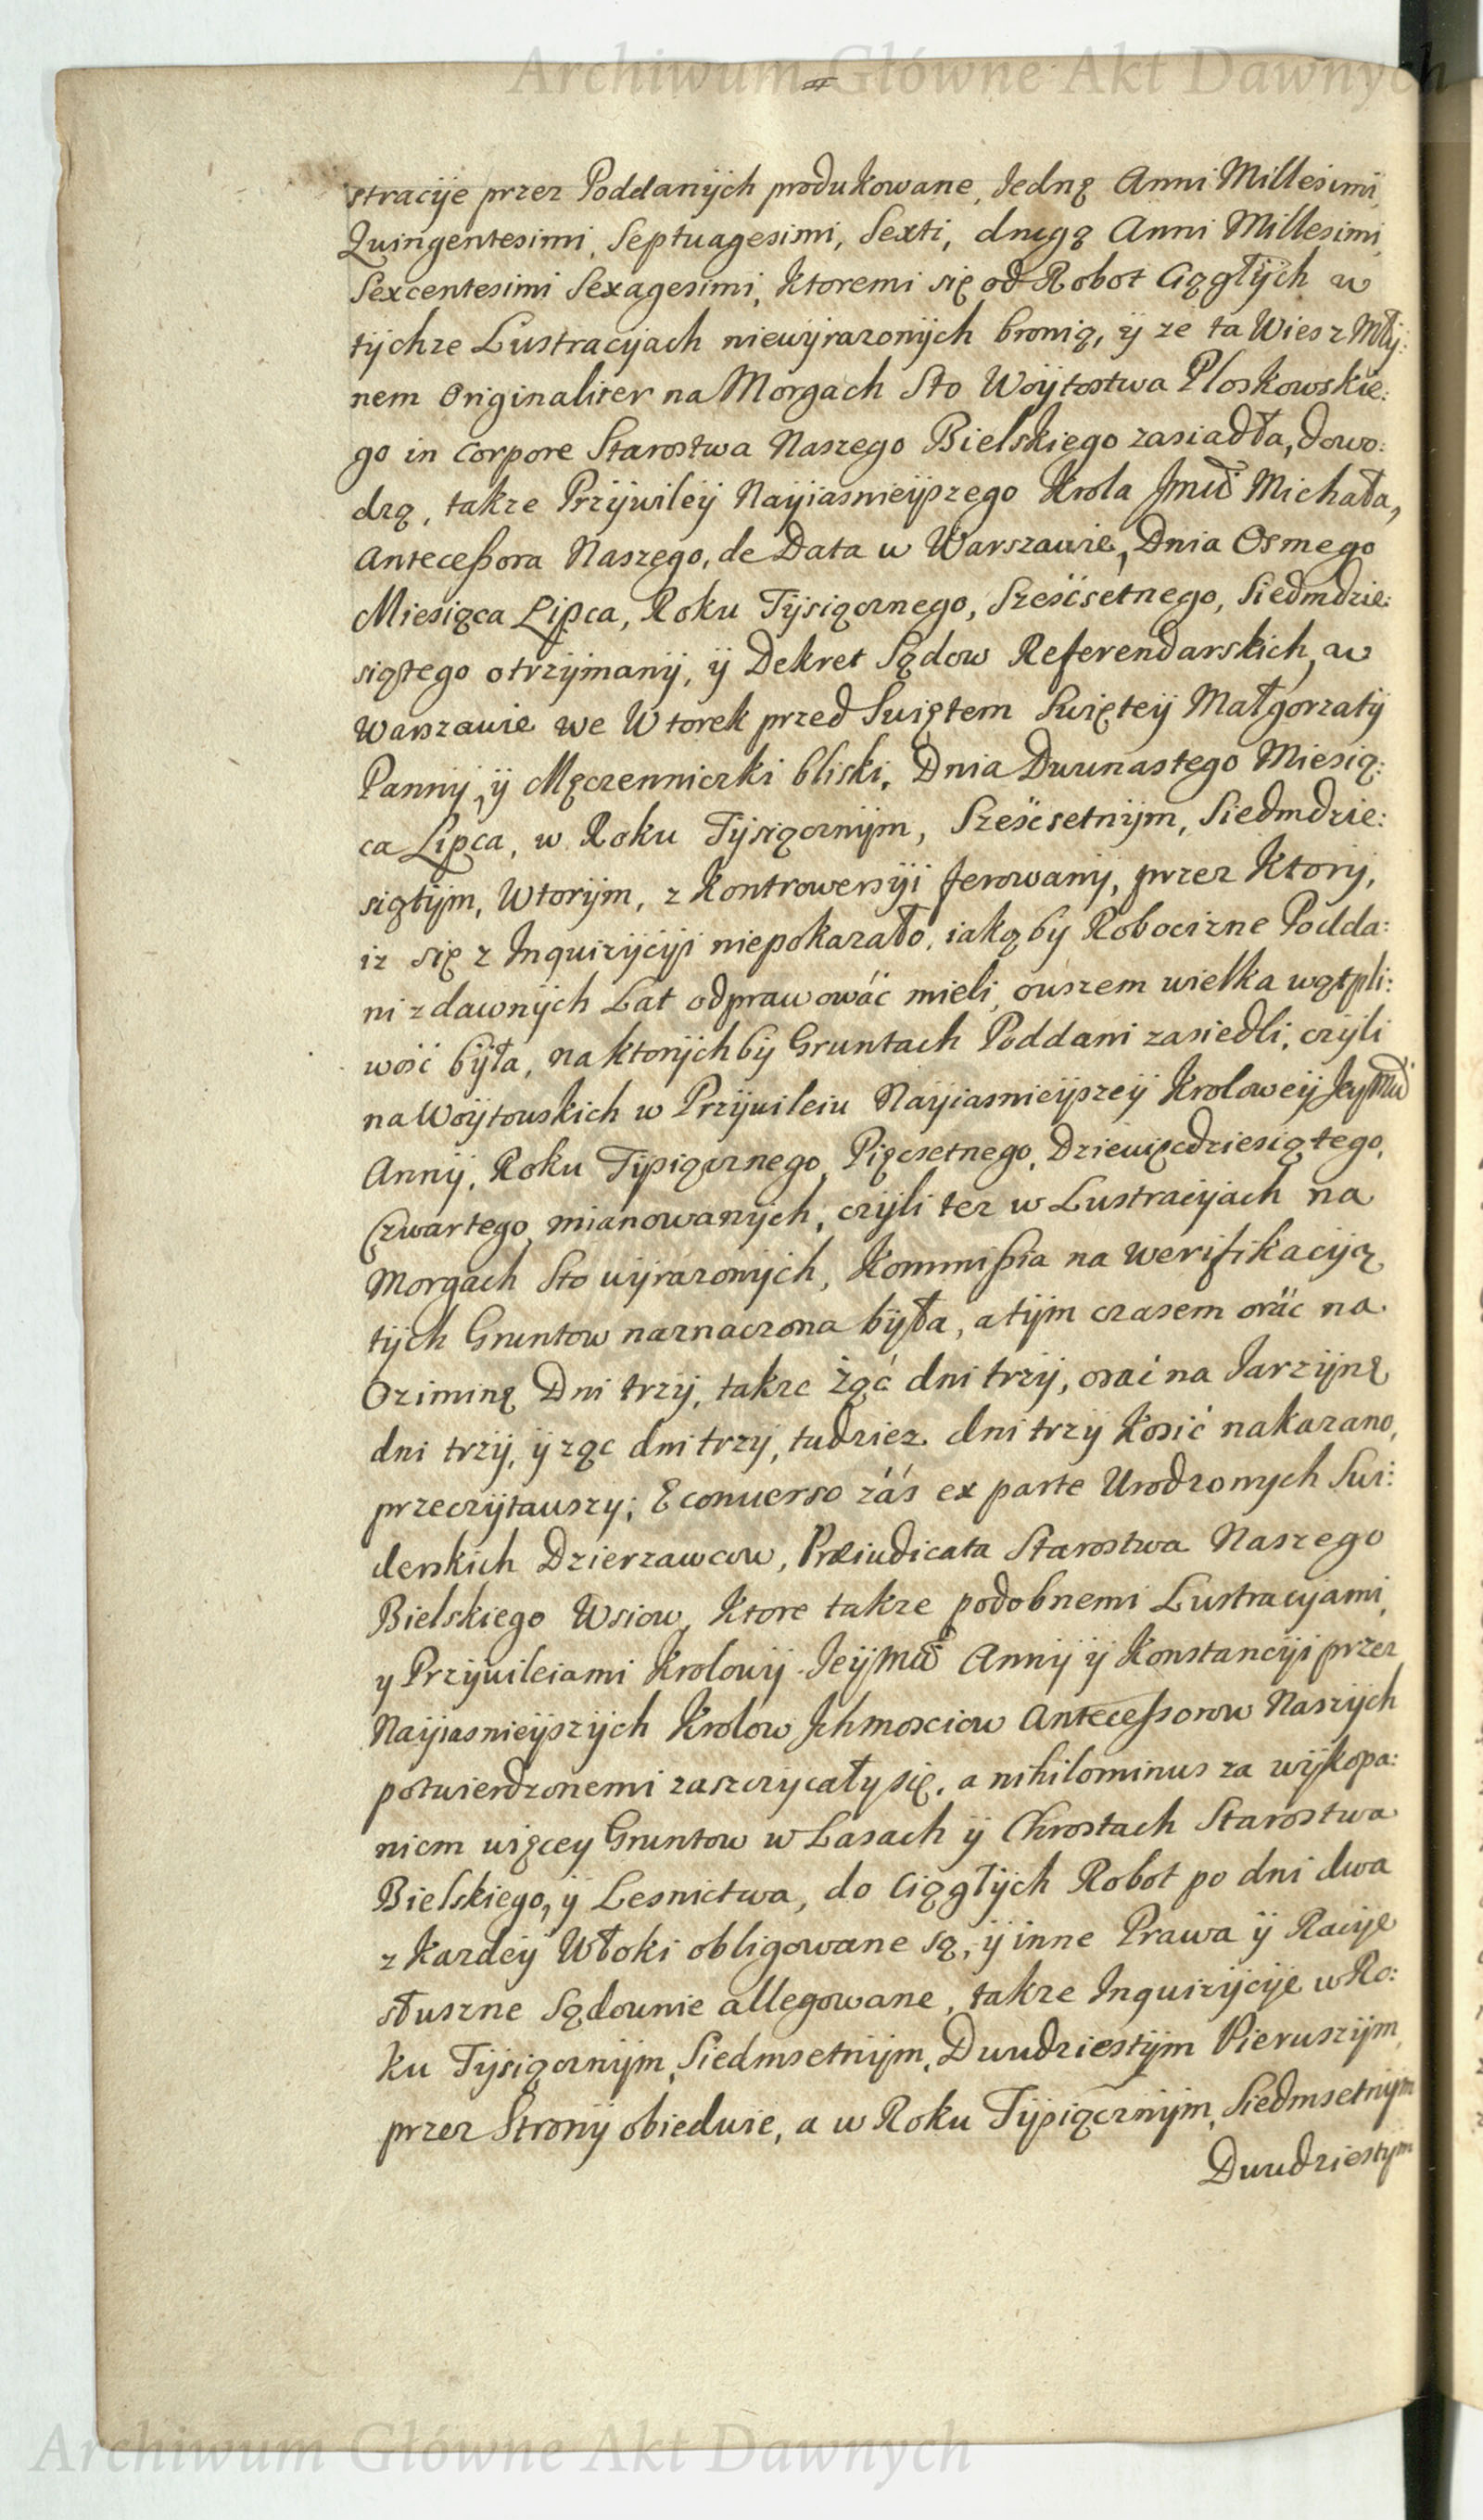 Archiwum Główne Akt Dawnych
stracije przez Poddanych produkowane, Jedną Anni Millesimi,
Quingentesimi, Septuagesimi, Sexti, drugą Anni Millesimi,
Sexcentesimi Sexagesimi, Ktoremi się od Robot Ciągłych w
tychze Lustracyach niewyrazonych bronią, ÿ ze ta Wies z Mły:
nem Originaliter na Morgach Sto Woytostwa Ploskowskie:
go in Corpore Starostwa Naszego Bielskiego zasiadła, dowo:
dzą, takze Przywiley Nayiasnieyszego Krola Jmći Michała,
Antecessora Naszego, de Data w Warszawie, Dnia Osmego
Miesiąca Lipca, Roku Tysiącznego, Sześćsetnego, Siedmdzie:
siątego otrzymany, ÿ Dekret Sądow Referendarskich, w
Warszawie we Wtorek przed Swiętem Swiętey Małgorzaty
Panny, ÿ Męczenniczki bliski, Dnia Dwunastego Miesią:
ca Lipca, w Roku Tysiącznym, Sześćsetnym, Siedmdzie:
siątym, Wtorym, z Kontrowersyi ferowany, przez Ktory,
iz się z Inquizycyi niepokazało, iakąby Robociznę Podda:
ni z dawnych Lat odprawować mieli, owszem wielka wątpli:
wość była, na ktorychby Gruntach Poddani zasiedli, czyli
na Woytowskich w Przywileiu Nayiasnieyszey Krolowey Jeymći
Anny, Roku Tysiącznego, Pięcsetnego, Dziewięcdziesiątego,
Czwartego, mianowanych, czyli tez w Lustracyach na
Morgach Sto wyrazonych, Kommissia na werifikacyą
tych Gruntow naznaczona była, a tym czasem orać na
Oziminę Dni trzy, takze Żąć dni trzy, orać na Jarzynę
dni trzy, ÿ ząc dni trzy, tudziez dni trzy Kosić nakazano,
przeczytawszy; E conuerso záś ex parte Urodzonych Swi:
derskich Dzierzawcow, Præiudicata Starostwa Naszego
Bielskiego Wsiow, Ktore takze podobnemi Lustracyami,
y Przywileiami Krolowy Jeymći Anny ÿ Konstancyi przez
Nayiasnieyszych Krolow Ichmosciow Antecessorow Naszych
potwierdzonemi zaszczycały się, a nihilominus za wykopa:
niem więcey Gruntow w Lasach ÿ Chrostach Starostwa
Bielskiego, ÿ Lesnictwa, do Ciągłych Robot po dni dwa
z Kazdey Włoki obligowane są, ÿ inne Prawa ÿ Racije
słuszne Sądownie allegowane, takze Inquizycyje w Ro:
ku Tysiącznym, Siedmsetnym, Dwudziestym Pierwszym,
przez Strony obiedwie, a w Roku Tysiącznym, Siedmsetnym
Dwudziestym
Archiwum Główne Akt Dawnych